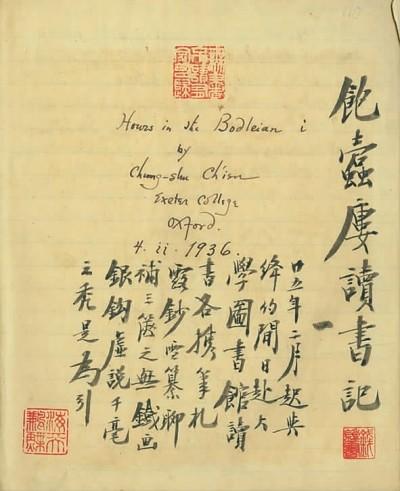 飽蠹廔讀書記 一
Hours in the Bodleian i
by
Chung-shu Ch'ien
Exeter College
Oxford.
4. ii. 1936.
廿五年二月起與
絳約間日赴大
學圖書館讀
書各攜筆札
露鈔雪纂聊
補三篋之無鐵画
銀鉤虛說千毫
之禿是為引